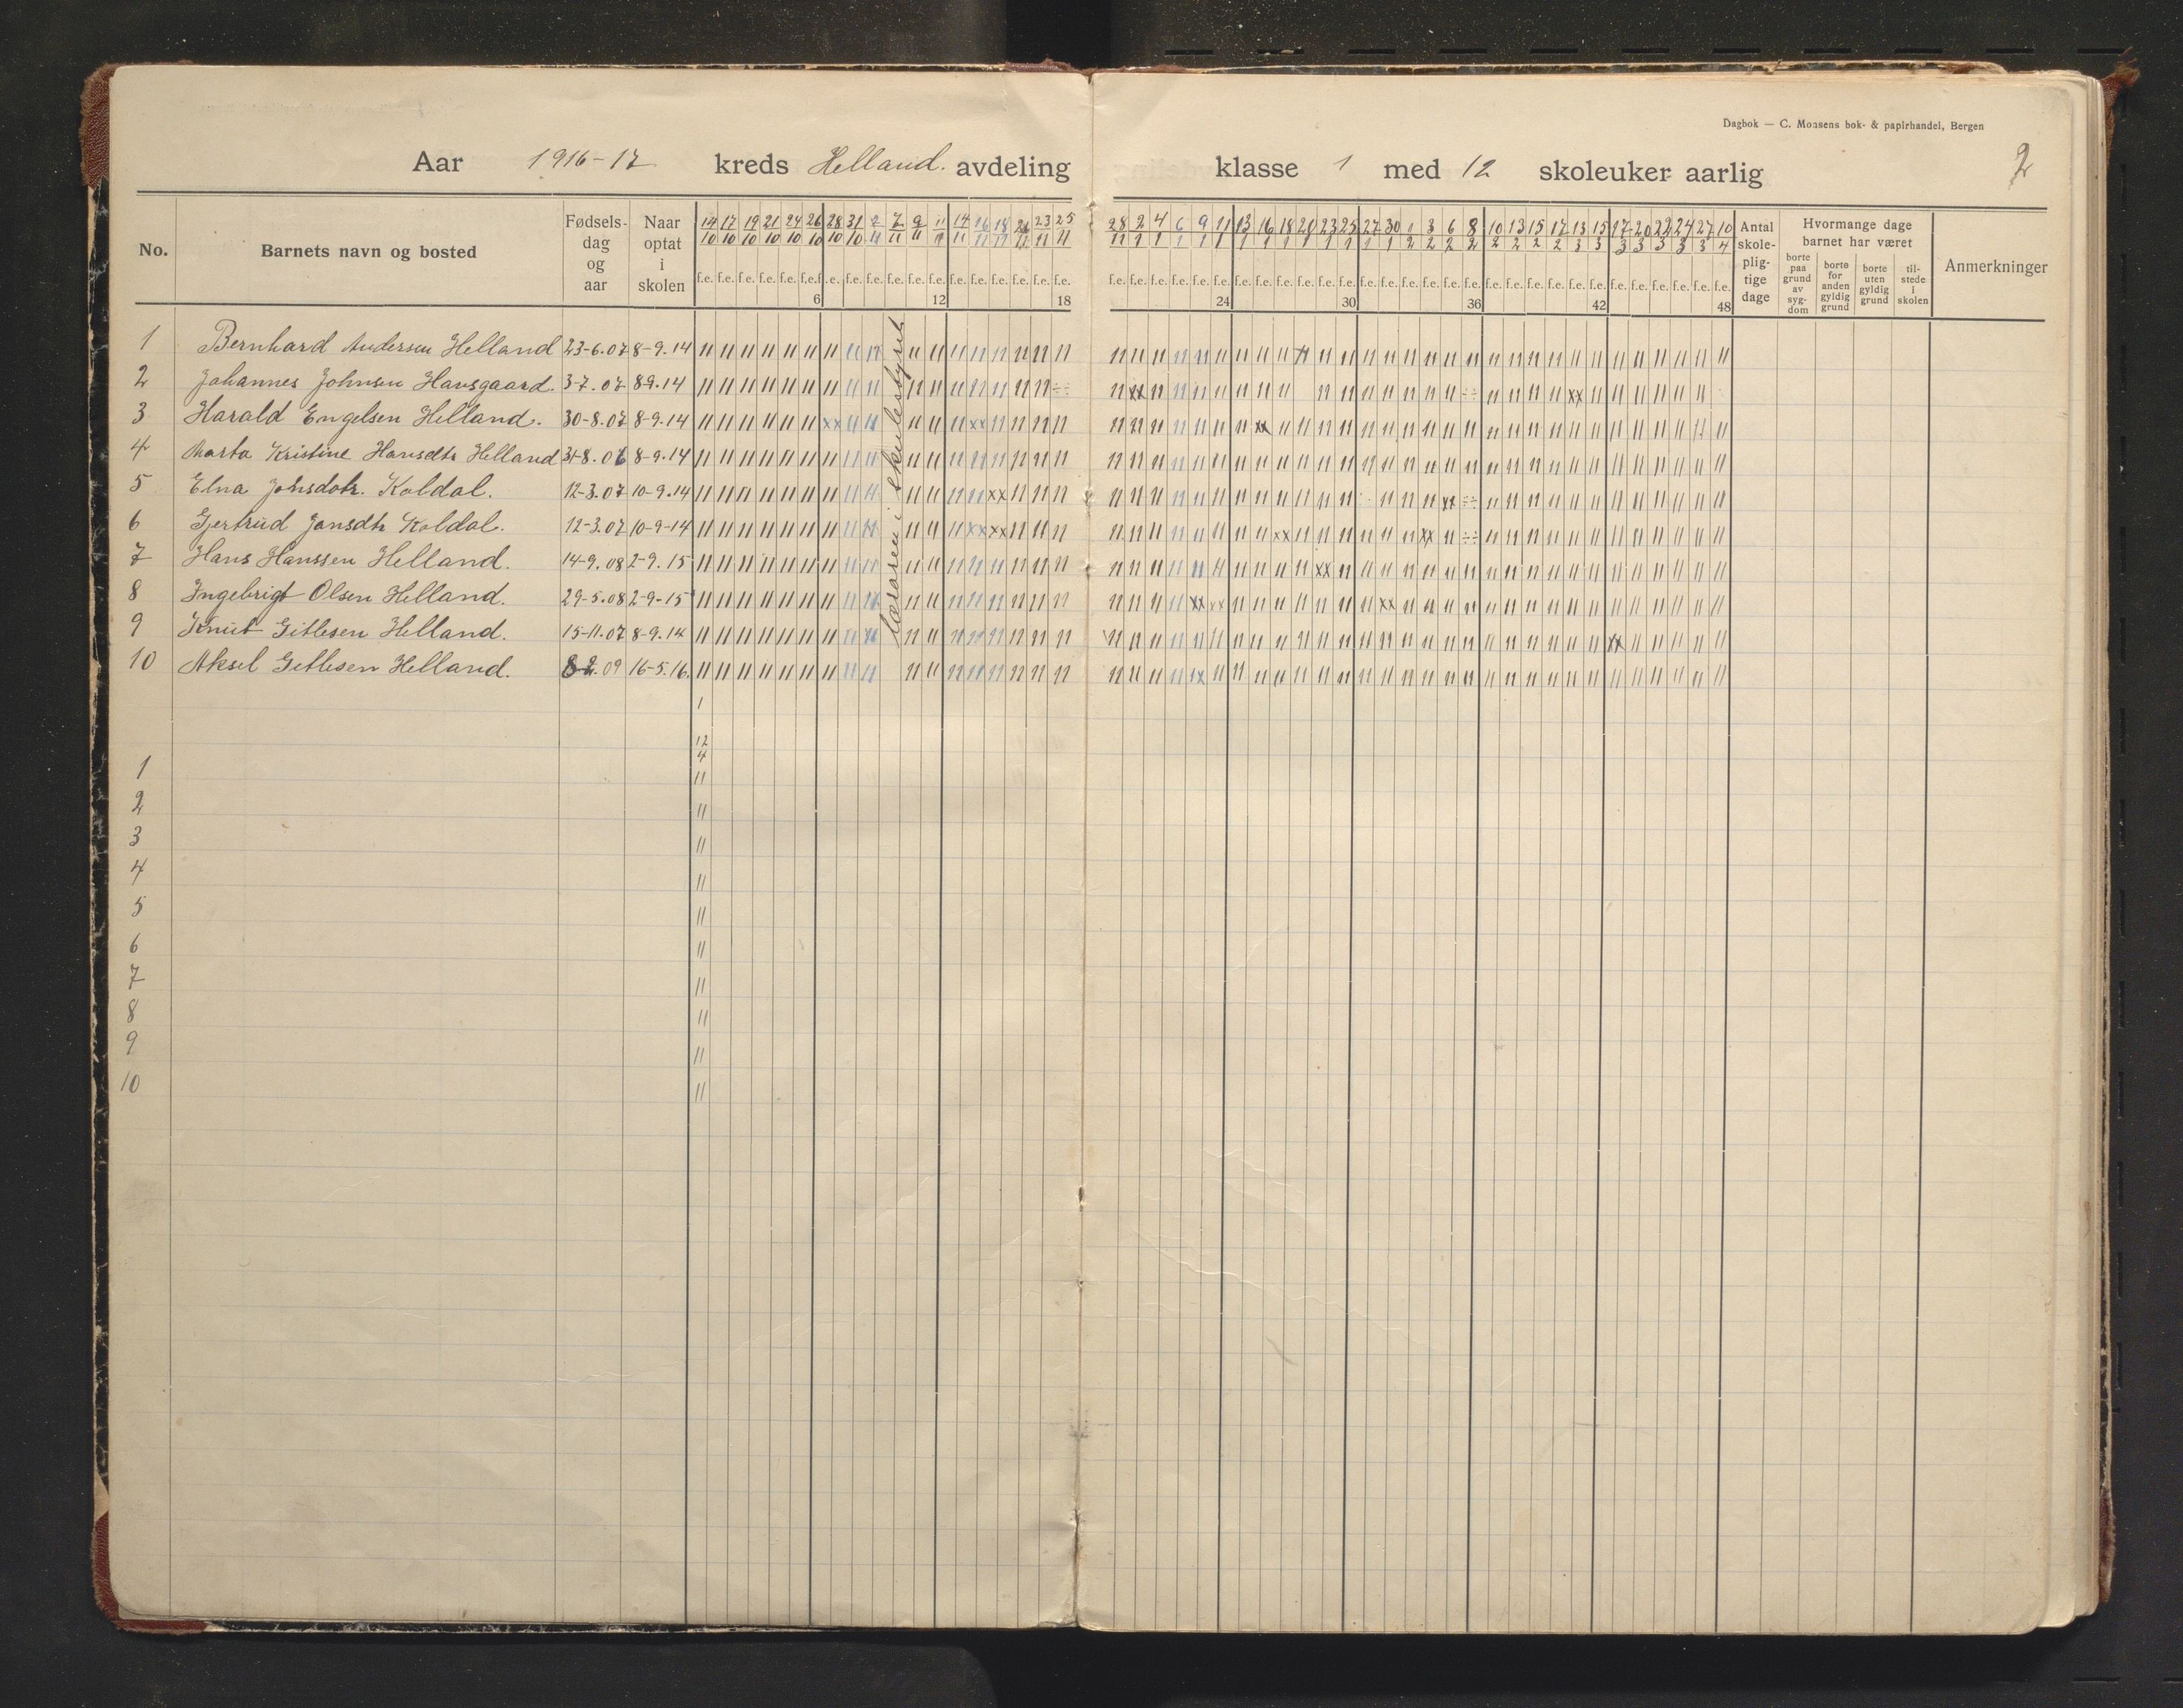 Dagbok — C. Monsens bok- & papirhandel, Bergen
2
Aar 1916-17 kreds Helland. avdeling klasse 1 med 12 skoleuker aarlig
No. Barnets navn og bosted Fødsels-dag og aar Naar optat i skolen
14/10 17/10 19/10 21/10 24/10 26/10 28/10 31/10 2/11 7/11 9/11 11/11 14/11 16/11 18/11 21/11 23/11 25/11
28/11 2/1 4/1 6/1 9/1 11/1 13/1 16/1 18/1 20/1 23/1 25/1 27/1 30/1 1/2 3/2 6/2 8/2 10/2 13/2 15/2 17/2 13/3 15/3 17/3 20/3 22/3 24/3 27/3 10/4
f.e. f.e. f.e. f.e. f.e. f.e. f.e. f.e. f.e. f.e. f.e. f.e. f.e. f.e. f.e. f.e. f.e. f.e.
6 12 18 24 30 36 42 48
Antal skole-plig-tige dage
Hvormange dage barnet har været
borte paa grund av syg-dom
borte for anden gyldig grund
borte uten gyldig grund
til-stede i skolen
Anmerkninger
1 Bernhard Andersen Helland 23-6.07 8-9.14
2 Johannes Johnsen Havsgaard. 3-7.07 8-9.14
3 Harald Engelsen Helland. 30-8.07 8-9.14
4 Marta Kristine Hansdtr Helland 31-8.06 8-9.14
5 Elna Johsdotr. Koldal. 12-3.07 10-9.14
6 Gjertrud Jonsdtr Koldal. 12-3.07 10-9-14
7 Hans Hanssen Helland. 14-9.08 2-9.15
8 Ingebrigt Olsen Helland. 29-5.08 2-9-15
9 Knut Gitlesen Helland. 15-11.07 8-9.14
10 Aksel Gitlesen Helland. 8-2.09 16-5.16.
Læraren i skulestyret
12/4
1 11
2 11
3 11
4 11
5 11
6 11
7 11
8 11
9 11
10 11